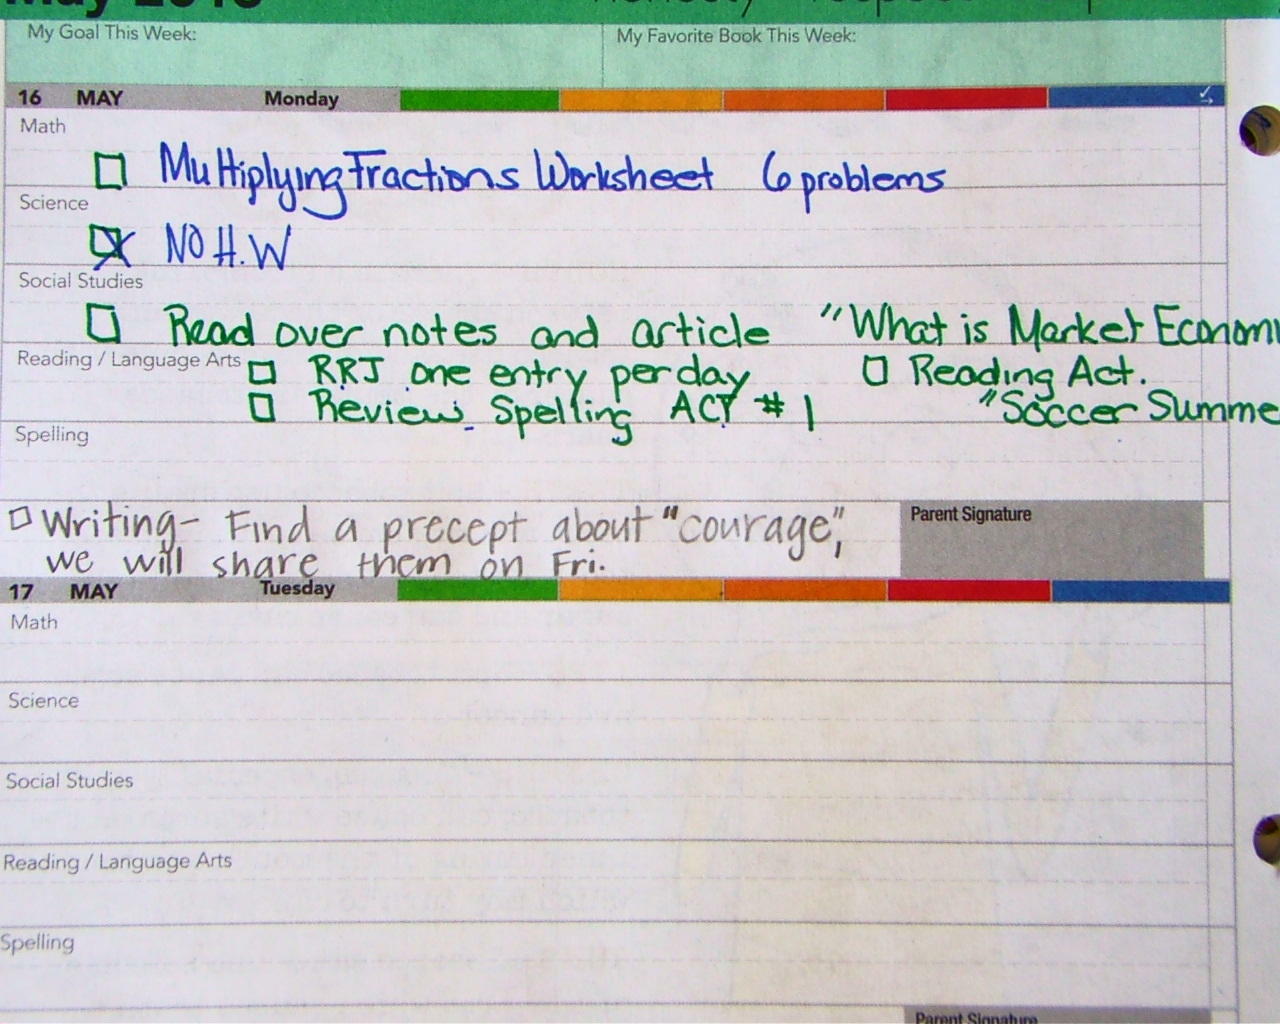 My Goal This Week: My Favorite Book This Week:
16 MAY Monday
Math
Multiplying Fractions Worksheet 6 problems
Science
NO H.W
Social Studies
Read over notes and article "What is Market Econom
Reading / Language Arts RRJ one entry per day Reading Act.
Review Spelling ACT # 1 "Soccer Summe
Spelling
Writing- Find a precept about "courage",
we will share them on Fri.
Parent Signature
17 MAY Tuesday
Math
Science
Social Studies
Reading / Language Arts
Spelling
Parent Signature